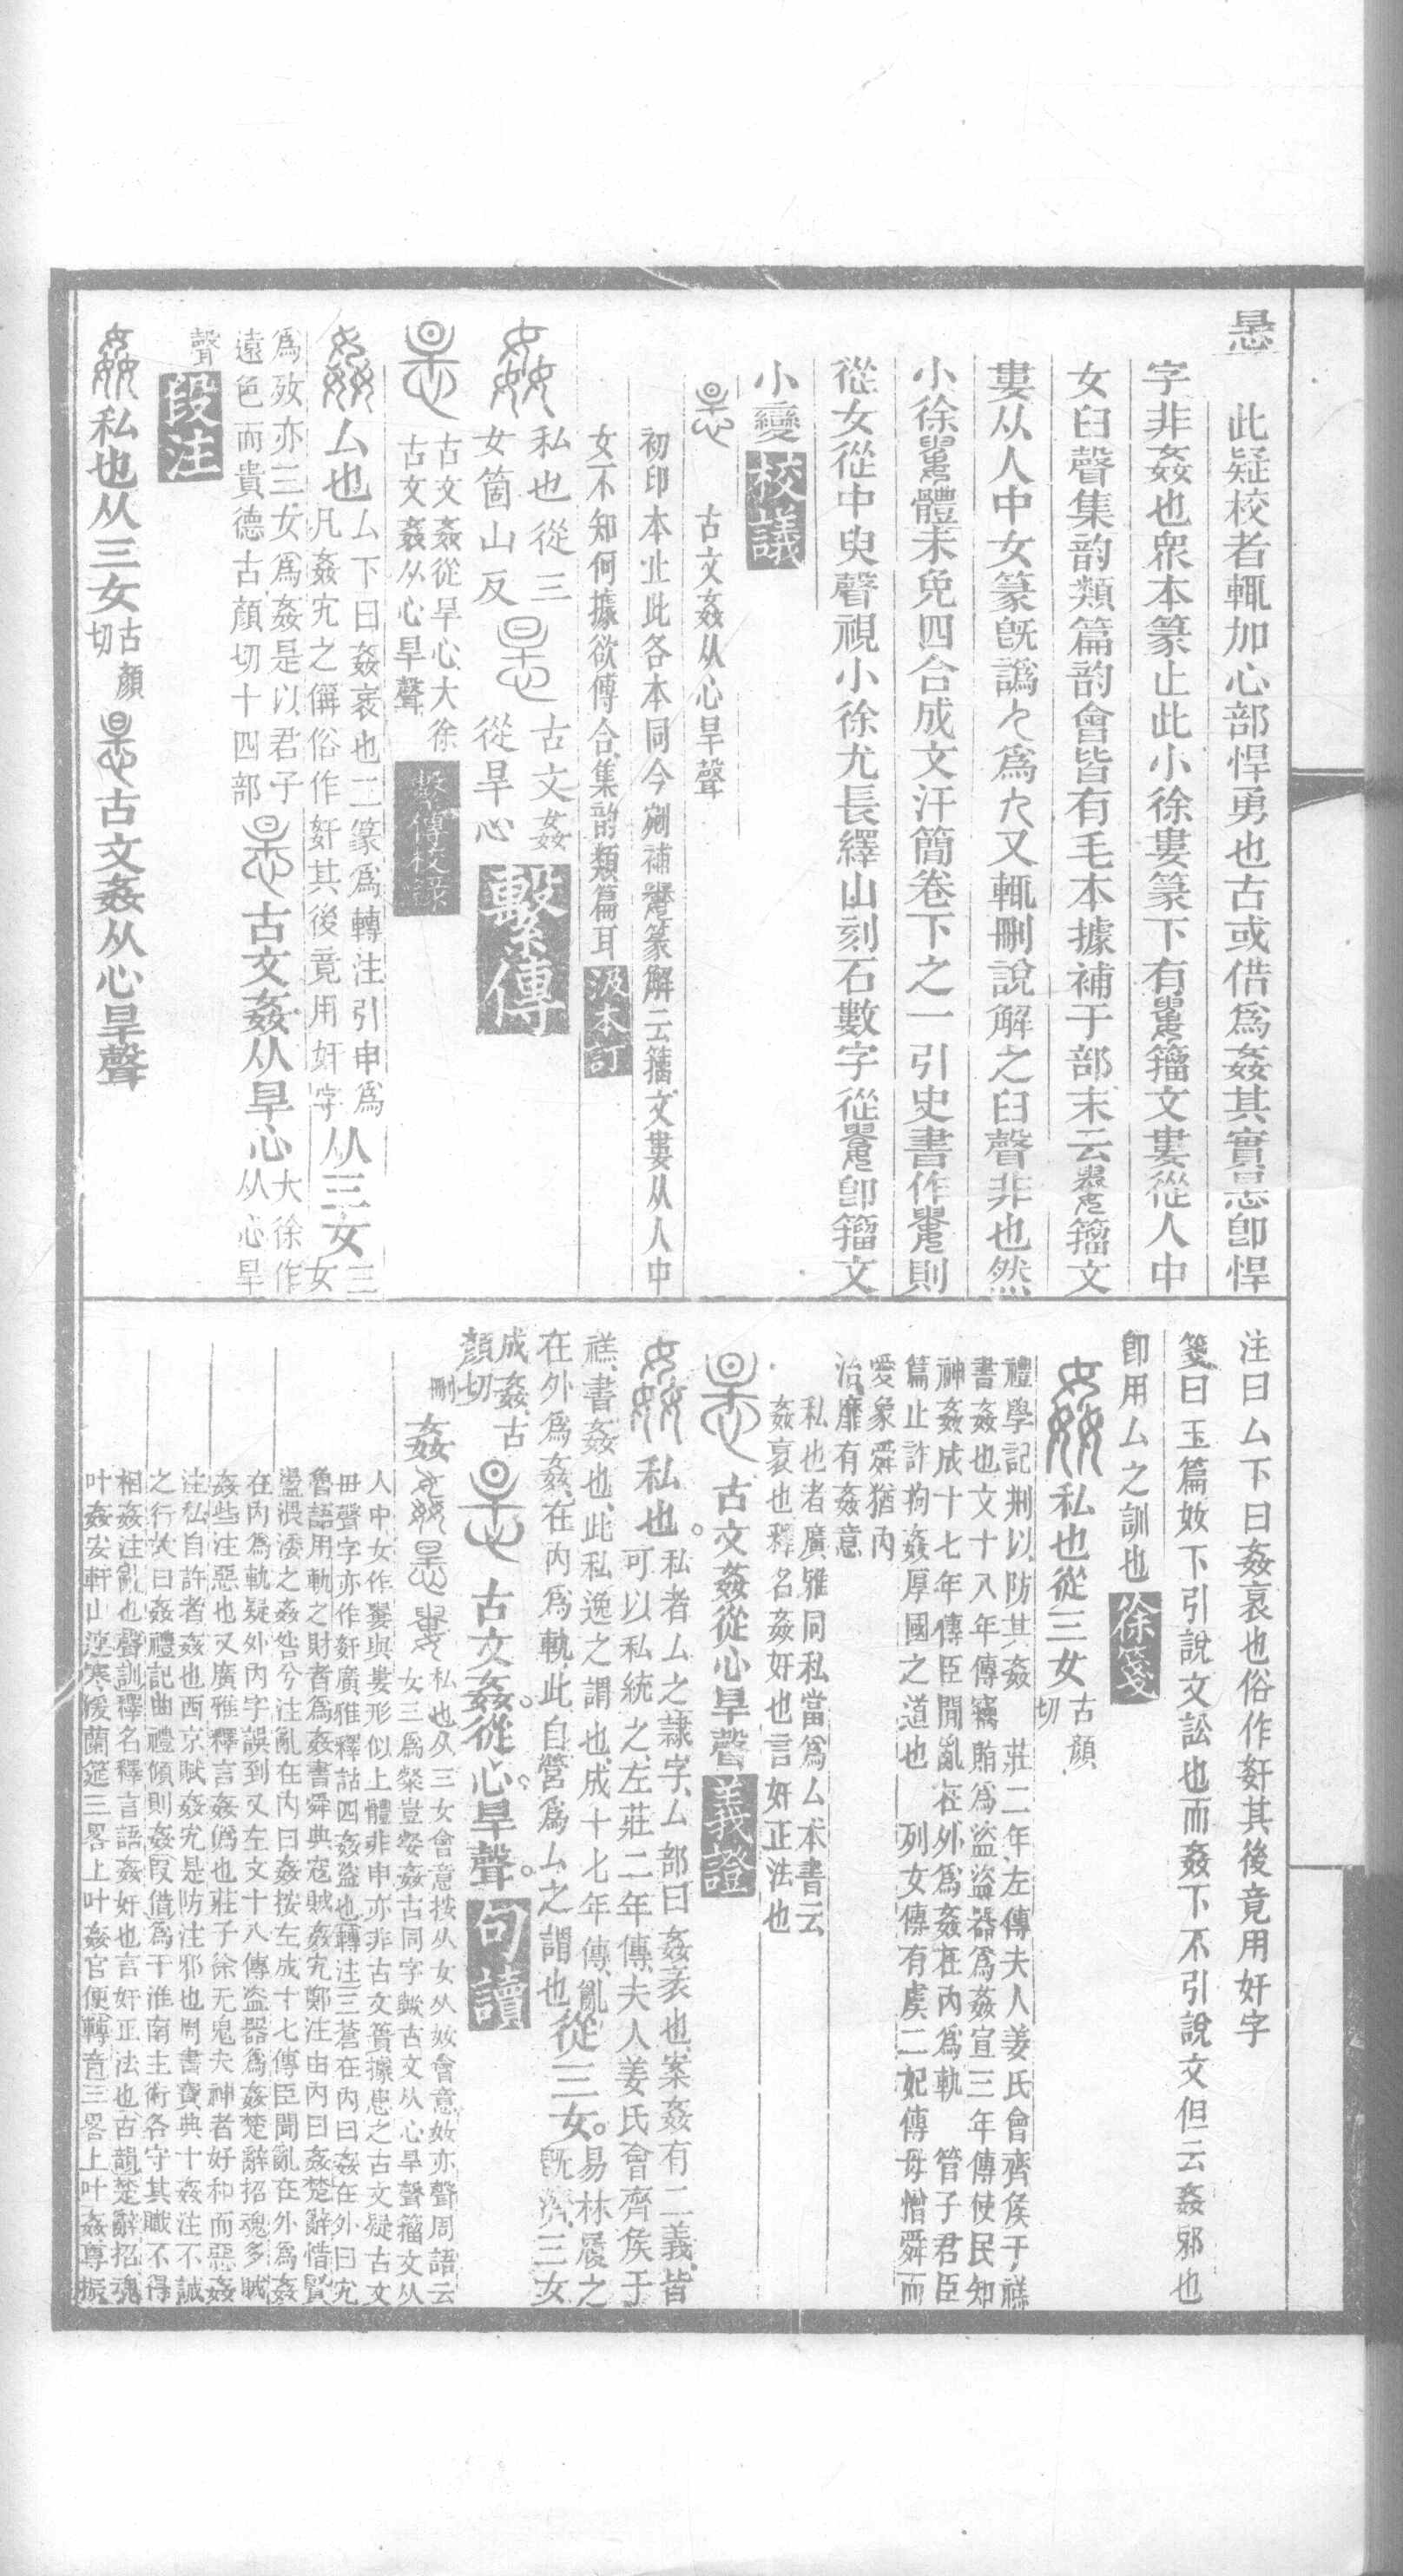 悬
此疑校者輒加心部悍勇也古或借爲姦其實悬卽悍
字非姦也眾本篆止此小徐婁篆下有籀文婁從人中
女臼聲集韵類篇韵會皆有毛本據補于部末云籀文
婁从人中女篆旣譌人爲又輒刪說解之臼聲非也然
小徐體未免四合成文汗簡卷下之一引史書作則
從女從中臾聲視小徐尤長繹山刻石數字從卽籀文
小變校議
古文姦从心旱聲
初印本止此各本同今剜補篆解云籀文婁从人中
女不知何據欲傅合集韵類篇耳汲本訂
姦私也從三
女箇山反
古文姦
從旱心繫傳
古文姦從旱心大徐
古文姦从心旱聲繫傳校錄
姦厶也厶下曰姦衺也二篆爲轉注引申爲
凡姦宄之偁俗作奸其後竟用奸字从三女三女
爲㚣亦三女爲姦是以君子
遠色而貴德古顏切十四部古文姦从旱心大徐作
从心旱
聲段注
姦私也从三女古顏
切古文姦从心旱聲
注曰厶下曰姦衺也俗作奸其後竟用奸字
箋曰玉篇奻下引說文訟也而姦下不引說文但云姦邪也
卽用厶之訓也徐箋
姦私也從三女古顏
切
禮學記刑以防其姦 莊二年左傳夫人姜氏會齊侯于禚
書姦也文十八年傳竊賄爲盜盜器爲姦宣三年傳使民知
神姦成十七年傳臣聞亂在外爲姦在內爲軌 管子君臣
篇止詐拘姦厚國之道也 列女傳有虞二妃傳母憎舜而
愛象舜猶內
治靡有姦意
私也者廣雅同私當爲厶本書云
姦衺也釋名姦奸也言奸正法也
古文姦從心旱聲義證
姦私也。私者厶之隷字厶部曰姦衺也案姦有二義皆
可以私統之左莊二年傳夫人姜氏會齊侯于
禚書姦也此私逸之謂也成十七年傳亂
在外爲姦在內爲軌此自營爲厶之謂也從三女。易林履之
旣濟三女
成姦古
顏切古文姦。從心旱聲。句讀
刪
姦
私也从三女會意按从女从奻會意奻亦聲周語云
女三爲粲豈姦古同字歟古文从心旱聲籀文从
人中女作與婁形似上體非申亦非古文蕢據患之古文疑古文
毌聲字亦作奸廣雅釋詁四姦盜也轉注三蒼在內曰姦在外曰宄
魯語用軌之財者爲姦書舜典寇賊姦宄鄭注由內曰姦楚辭惜賢
盪渨涹之姦咎兮注亂在內曰姦按左成十七傳臣聞亂在外爲姦
在內爲軌疑外內字誤到又左文十八傳盜器爲姦楚辭招魂多賊
姦些注惡也又廣雅釋言姦僞也莊子徐无鬼夫神者好和而惡姦
注私自許者姦也西京賦姦宄是防注邪也周書寶典十姦注不誠
之行故曰姦禮記曲禮傾則姦叚借爲干淮南主術各守其職不得
相姦注亂也聲訓釋名釋言語姦奸也言奸正法也古韻楚辭招魂
叶姦安軒山連寒湲蘭筵三畧上叶姦官便轉音三畧上叶姦尊振